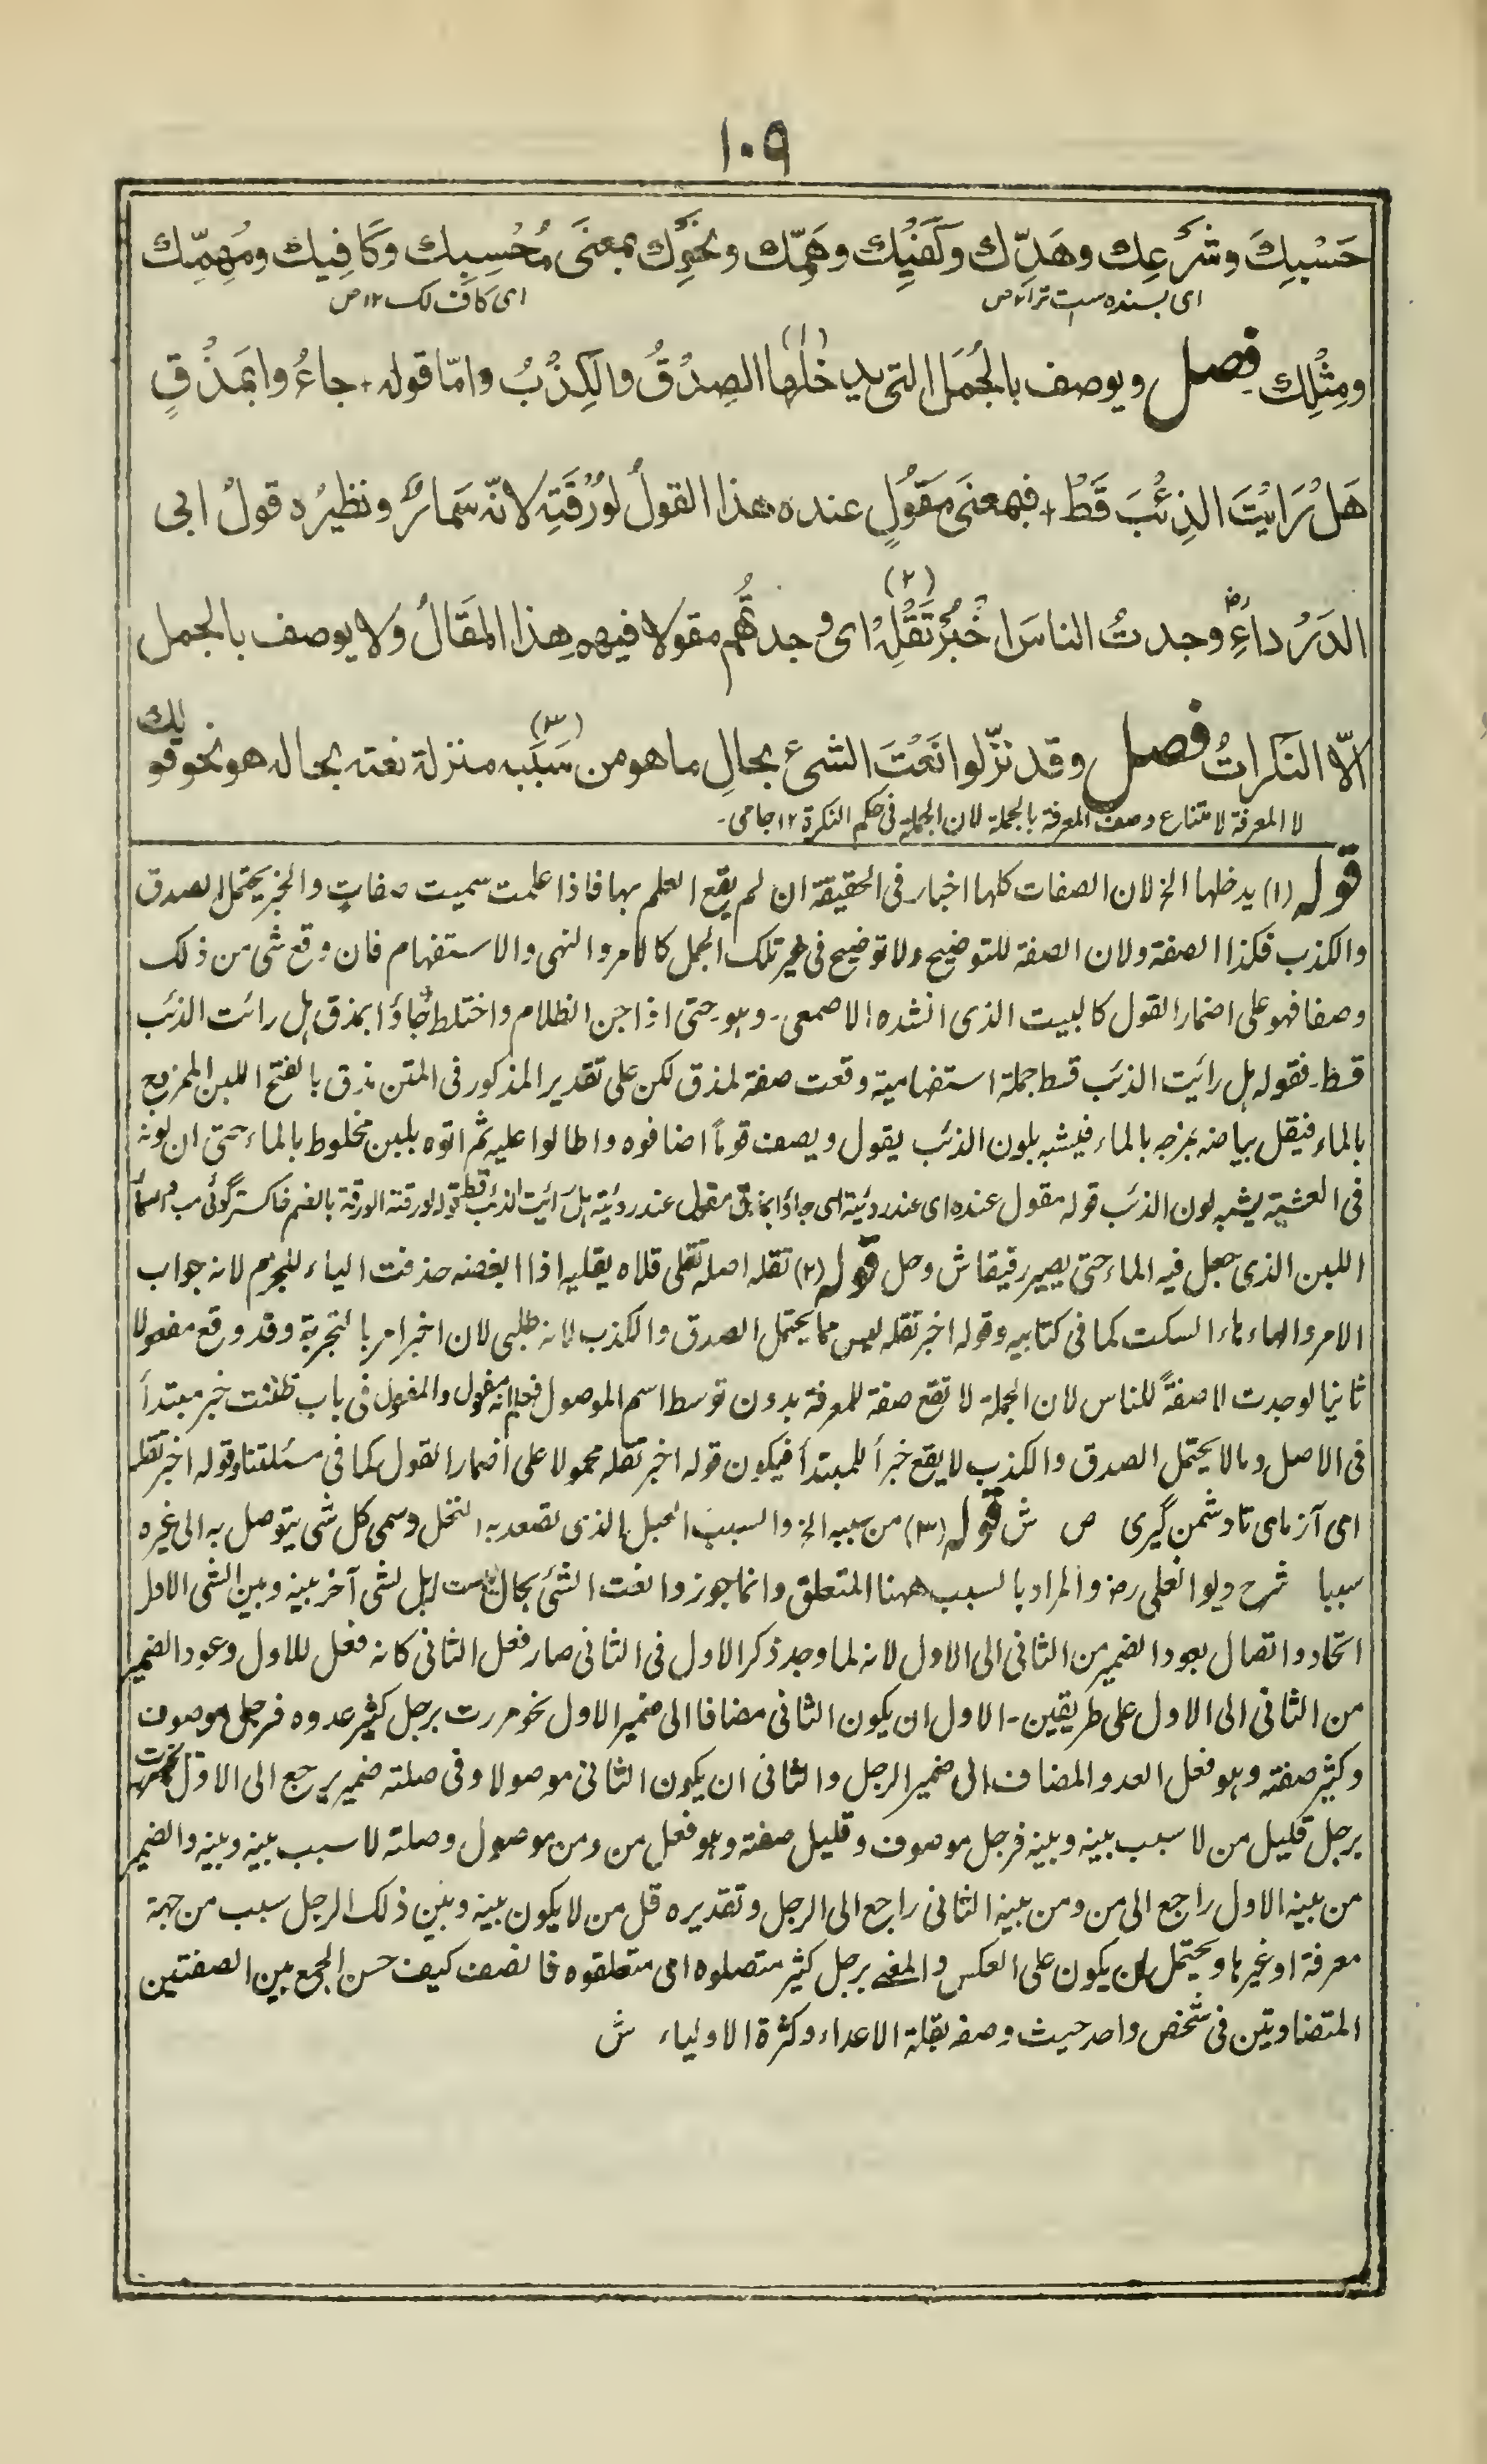 ١٠٩
حَسْبِكَ وشَرْعِك وهَدِّك وكَفْيِك وهَمِّك ونحْوِك بمعنَى مُحْسِبِك وكَافِيك ومُهِمِّك
اى بسنده ست ترا ١٢ ص اى كاف لك ١٢ ص
ومِثْلِك فصل ويوصف بالجُمَل التى يدخلها (١) الصِدْقُ والكِذْبُ وامّا قوله + جاءُوا بمَذْقٍ
هَلْ رَايْتَ الذِئْبَ قَطْ + فبمعنَى مقولٍ عنده هذا القولُ لوُرْقَتِه لانّه سَمارٌ ونظيرُه قولُ ابى
الدَرْداءِ رض وجدتُ الناسَ اخْبُرْ تَقْلِهْ (٢) اى وجدتُهُم مقولا فيهم هذا المقَالُ ولا يوصف بالجمل
الّا النكراتُ فصل وقد نزّلوا نَعْتَ الشىء بحالِ ما هو من سَبَبِه (٣) منزلة نعته بحاله هو نحو قولك
لا المعرفة لامتناع وصف المعرفة بالجملة لان الجملة فى حكم النكرة ١٢ جامى -
قوله (١) يدخلها الخ لان الصفات كلها اخبار فى الحقيقة ان لم يقع العلم بها فاذا علمت سميت صفات والخبر يحتمل الصدق
والكذب فكذا الصفة ولان الصفة للتوضيح ولا توضيح فى غير تلك الجمل كالامر والنهى والاستفهام فان وقع شى من ذلك
وصفا فهو على اضمار القول كالبيت الذى انشده الاصمعى - وهو - حتى اذا جن الظلام واختلط جاؤا بمذق هل رائت الذئب
قط - فقوله هل رائيت الذئب قط جملة استفهامية وقعت صفة لمذق لكن على تقدير المذكور فى المتن مذق بالفتح اللبن الممزوج
بالماء فيقل بياضه بمزجه بالماء فيشبه بلون الذئب يقول ويصف قوماً اضافوه واطالوا عليه ثم اتوه بلبن مخلوط بالماء حتى ان لونه
فى العشية يشبه لون الذئب قوله مقول عنده اى عند رؤيته اى جاؤا بمذق مقول عند رؤيته هل رايت الذئب قط قوله لورقته الورقة بالضم خاكستر گونى
اللبن الذى جعل فيه الماء حتى يصير رقيقا ش وصل قوله (٢) تقله اصله تقلى قلاه يقليه اذا ابغضه حذفت الياء للجزم لانه جواب
الامر والهاء هاء السكت كما فى كتابيه وقوله اخبر تقله ليس مما يحتمل الصدق والكذب لانه طلبى لان اخبر امر بالتجربة وقد وقع مفعولا
ثانيا لوجدت لا صفةً للناس لان الجملة لا تقع صفة للمعرفة بدون توسط اسم الموصول فعلم انه مفعول والمفعول فى باب ظننت خبر مبتدأ
فى الاصل وما لا يحتمل الصدق والكذب لا يقع خبراً للمبتدأ فيكون قوله اخبر تقله محمولا على اضمار القول كما فى مسئلتنا وقوله اخبر تقله
اى آزماى تا دشمن گيرى ص ش قوله (٣) من سببه الخ والسبب الحبل الذى تصعد به النخل وسمى كل شى يتوصل به الى غيره
سببا شرح والمراد بالسبب ههنا المتعلق وانما جوزوا نعت الشئ بحال ليست له بل لشى آخر بينه وبين الشى الاول
اتحاد واتصال بعود الضمير من الثانى الى الاول لانه لما وجد ذكر الاول فى الثانى صار فعل الثانى كانه فعل للاول وعود الضمير
من الثانى الى الاول على طريقين - الاول ان يكون الثانى مضافا الى ضمير الاول نحو مررت برجل كثير عدوه فرجل موصوف
وكثير صفته وهو فعل العدو المضاف الى ضمير الرجل والثانى ان يكون الثانى موصولا وفى صلته ضمير يرجع الى الاول نحو مررت
برجل قليل من لا سبب بينه وبينه فرجل موصوف وقليل صفته وهو فعل من ومن موصول وصلته لا سبب بينه وبينه والضمير
من بينه الاول راجع الى من ومن بينه الثانى راجع الى الرجل وتقديره قل من لا يكون بينه وبين ذلك الرجل سبب من جهة
معرفة او غيرها ويحتمل ان يكون على العكس والمعنى برجل كثير متصلوه اى متعلقوه فانصف كيف حسن الجمع بين الصفتين
المتضاوتين فى شخص واحد حيث وصف بقلة الاعداء وكثرة الاولياء ش